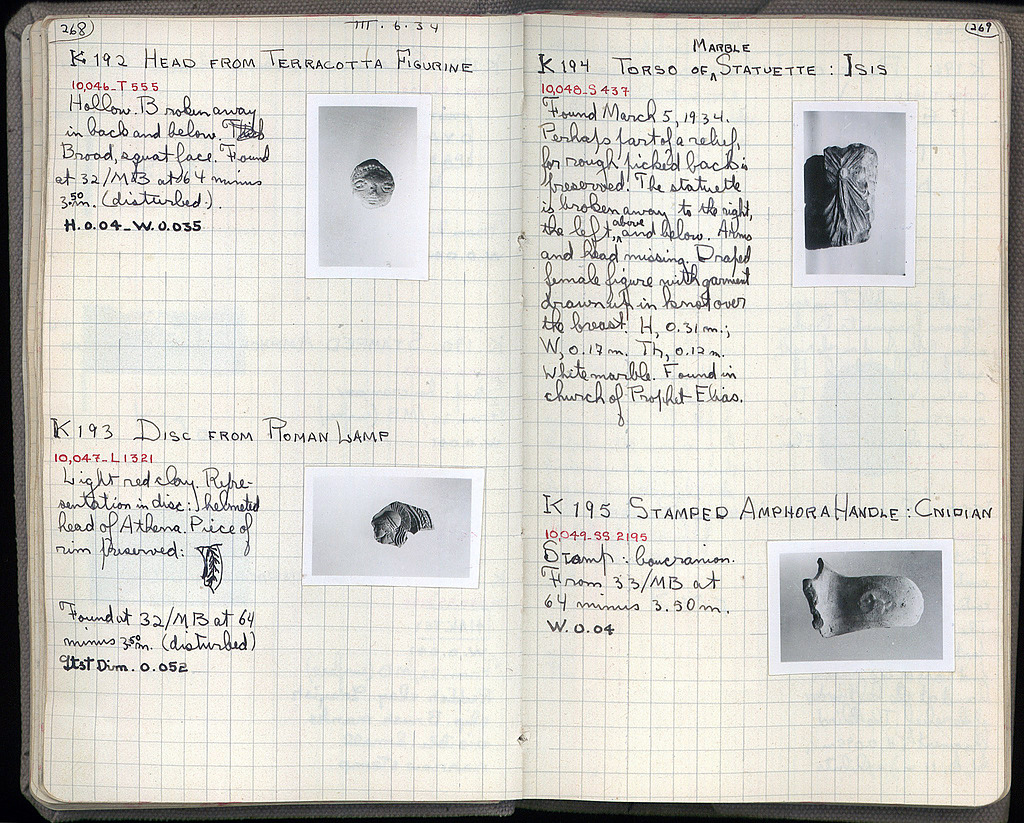 268
III. 6. 34
K 192 HEAD FROM TERRACOTTA FIGURINE
10,046-T 555
Hollow. Broken away
in back and below.
Broad, squat face. Found
at 32/MB at 64 minus
3.50 m. (disturbed).
H. 0.04 - W. 0.035
K 193 DISC FROM ROMAN LAMP
10,047-L1321
Light red clay. Repre-
sentation in disc: helmeted
head of Athena. Piece of
rim preserved:
Found at 32/MB at 64
minus 3.50 m. (disturbed)
Gtst Dim. 0.052
269
MARBLE
K 194 TORSO OF STATUETTE: ISIS
10,048-S 437
Found March 5, 1934.
Perhaps part of a relief,
for rough picked back is
preserved. The statuette
is broken away to the right,
the left, above and below. Arms
and head missing. Draped
female figure with garment
drawn up in knot over
the breast. H, 0.31 m.;
W, 0.17 m. Th, 0.12 m.
White marble. Found in
church of Prophet Elias.
K 195 STAMPED AMPHORA HANDLE: CNIDIAN
10,049-SS 2195
Stamp: boucranion.
From 33/MB at
64 minus 3.50 m.
W. 0.04